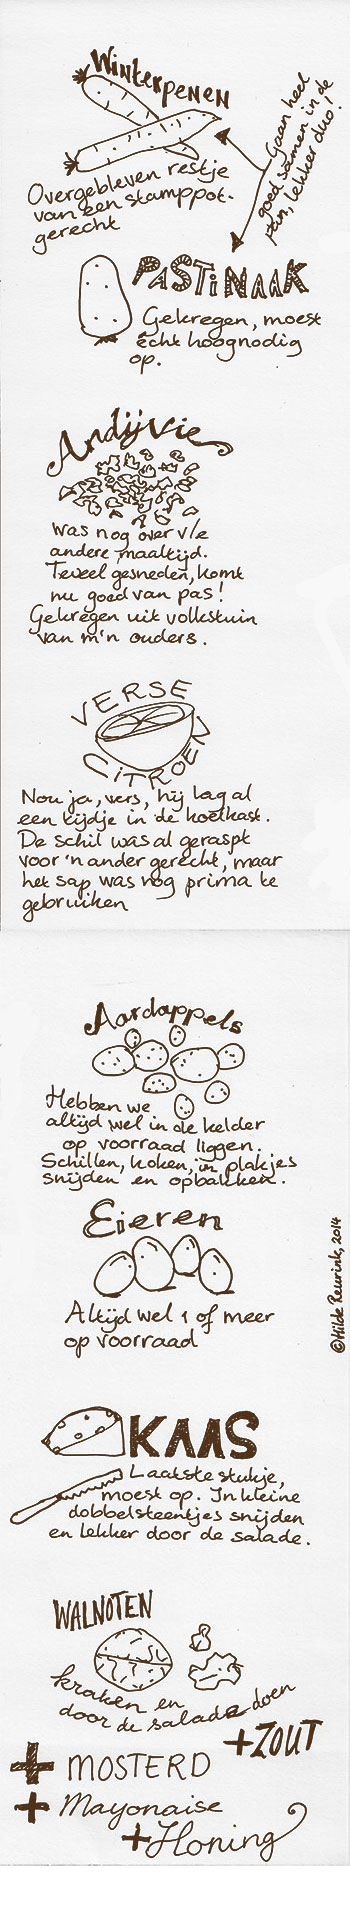 Winterpenen
Gaan heel
goed samen in de
pan, lekker duo!
Overgebleven restje
van een stamppot-
gerecht
PASTINAAK
Gekregen, moest
écht hoognodig
op.
Andijvie
Was nog over v/e
andere maaltijd.
Teveel gesneden, komt
nu goed van pas!
Gekregen uit volkstuin
van m'n ouders.
VERSE
CITROEN
Nou ja, vers, hij lag al
een tijdje in de koelkast.
De schil was al geraspt
voor 'n ander gerecht, maar
het sap was nog prima te
gebruiken
Aardappels
Hebben we
altijd wel in de kelder
op voorraad liggen.
Schillen, koken, in plakjes
snijden en opbakken.
Eieren
Altijd wel 1 of meer
op voorraad
©Hilde Reurink, 2014
KAAS
Laatste stukje,
moest op. In kleine
dobbelsteentjes snijden
en lekker door de salade.
WALNOTEN
kraken en
door de salade doen
+ZOUT
+ MOSTERD
+ Mayonaise
+Honing